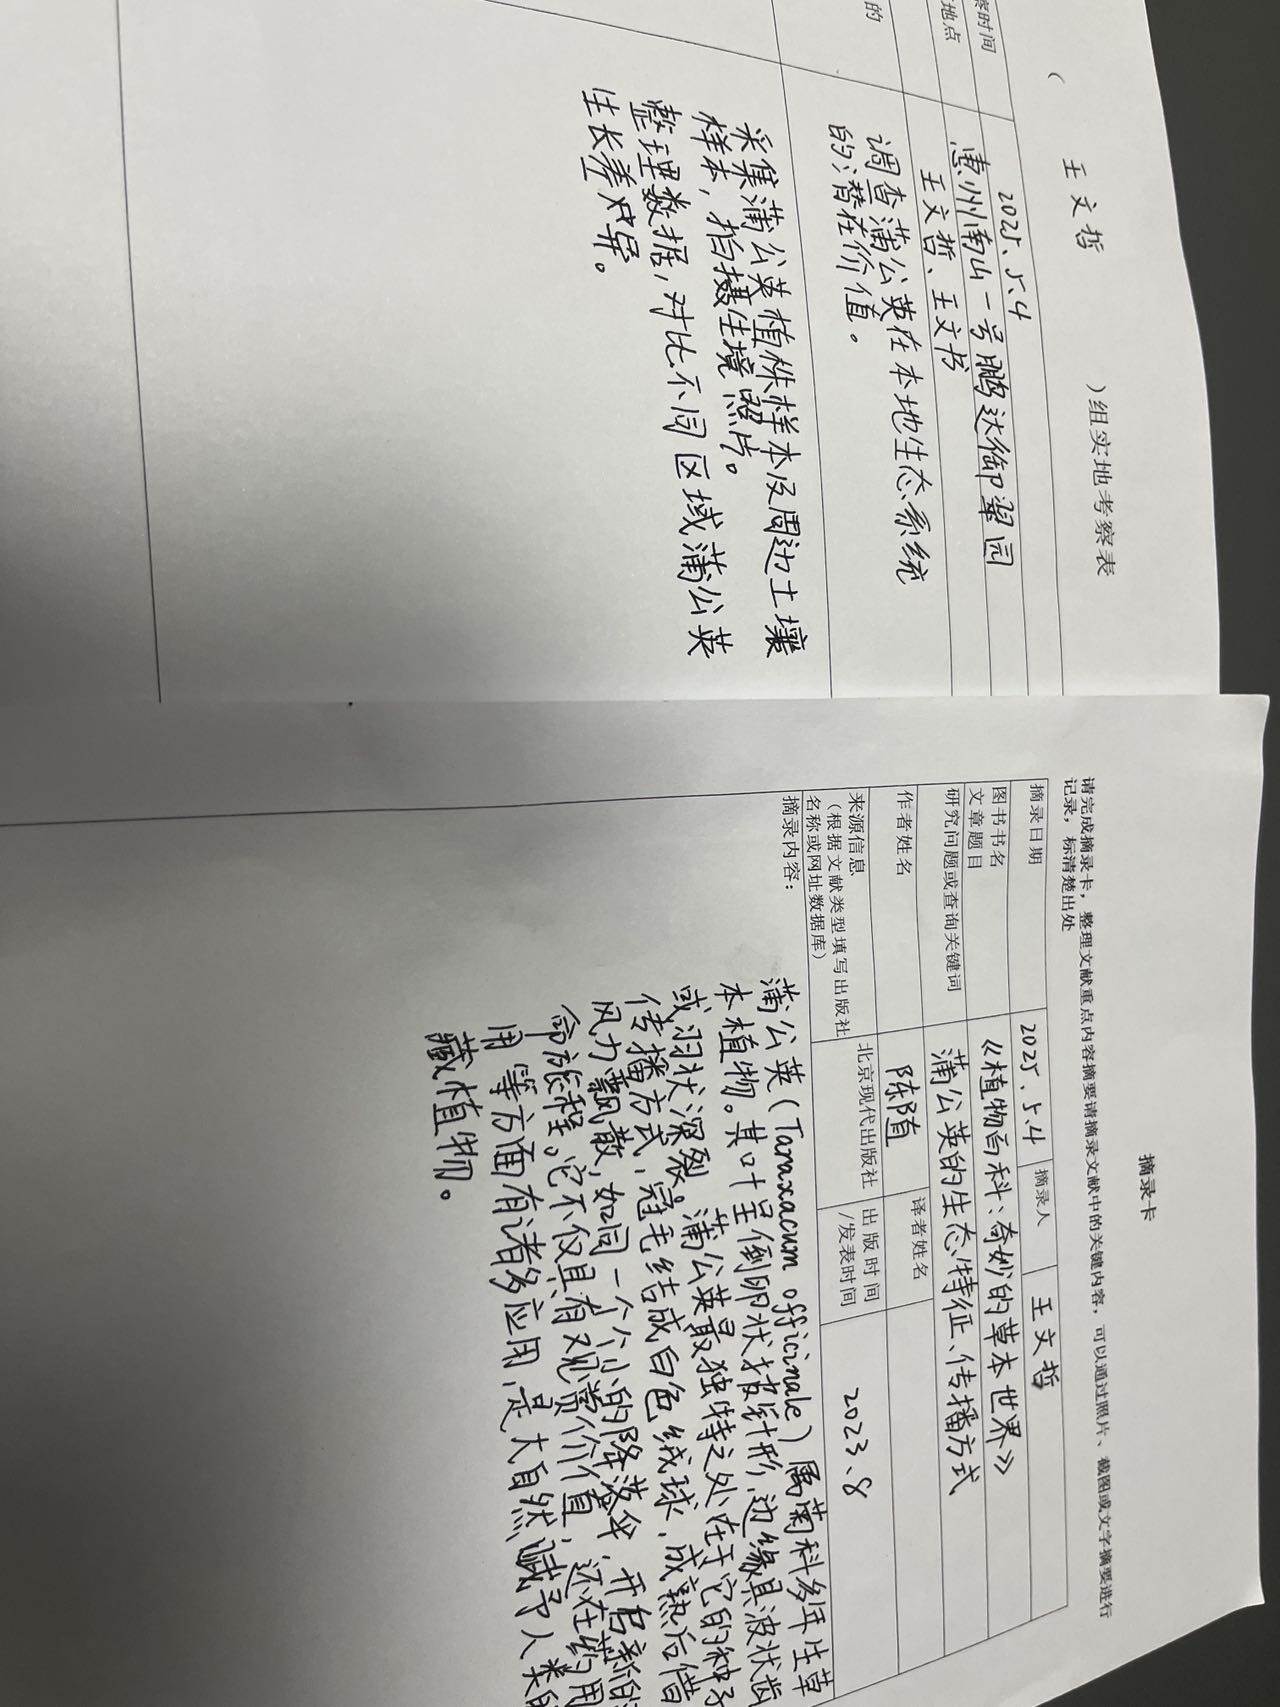 ( 王文哲 )组实地考察表
察时间 2025.5.4
地点 惠州南山一号鹏达御翠园
王文哲、王文书
的 调查蒲公英在本地生态系统
的潜在价值。
采集蒲公英植株样本及周边土壤
样本，拍摄生境照片。
整理数据，对比不同区域蒲公英
生长差异。
摘录卡
请完成摘录卡，整理文献重点内容摘要请摘录文献中的关键内容，可以通过照片、截图或文字摘要进行
记录，标清楚出处
摘录日期 2025.5.4 摘录人 王文哲
图书书名
文章题目 《植物百科：奇妙的草本世界》
研究问题或查询关键词 蒲公英的生态特征、传播方式
作者姓名 陈随 译者姓名
来源信息
（根据文献类型填写出版社
名称或网址数据库） 北京现代出版社 出版时间
/发表时间 2023.8
摘录内容：
蒲公英（Taraxacum officinale）属菊科多年生草
本植物。其叶呈倒卵状披针形，边缘具波状齿
或羽状深裂。蒲公英最独特之处在于它的种子
传播方式，冠毛结成白色绒球，成熟后借
风力飘散，如同一个个小的降落伞，开启新的
命旅程。它不仅具有观赏价值，还在药用
用等方面有诸多应用，是大自然赋予人类的
藏植物。